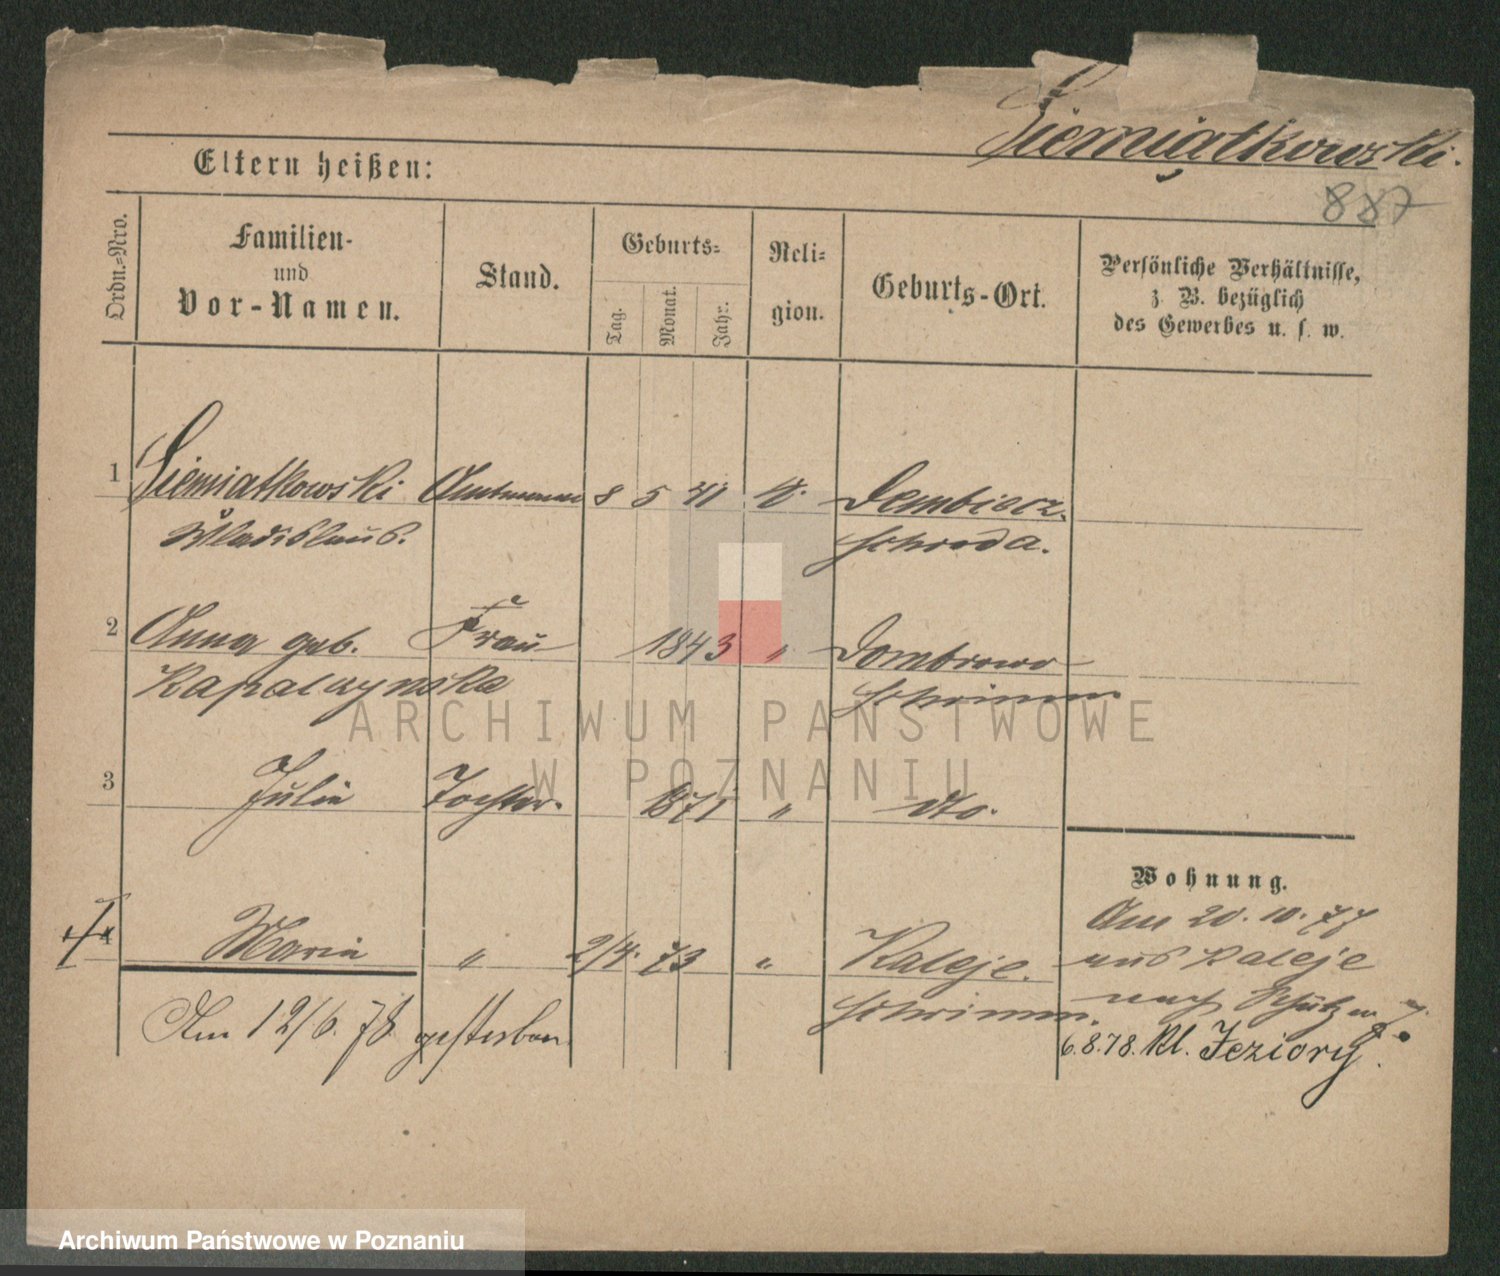 Siemiątkowski.
887
Eltern heißen:
Ordn.-Nro.
Familien-
und
Vor-Namen.
Stand.
Geburts-
Tag.
Monat.
Jahr.
Reli-
gion.
Geburts-Ort.
Persönliche Verhältnisse,
z. B. bezüglich
des Gewerbes u. s. w.
1 Siemiatkowski Amtmann 8 5 41 k. Dembicz.
Wladislaus. Schroda.
2 Anna geb. Frau 1843 " Dombrowo
Kapalczynska Schrimm
3 Julie Tochter. 1871 " dto.
4 Maria " 2/4. 73 " Kaleje.
Schrimm.
Am 12/6. 78 gesterben
Wohnung.
Am 20. 10. 77
aus Kaleje
nach Schützen
6.8.78. Kl. Jeziory.
ARCHIWUM PAŃSTWOWE
W POZNANIU
Archiwum Państwowe w Poznaniu